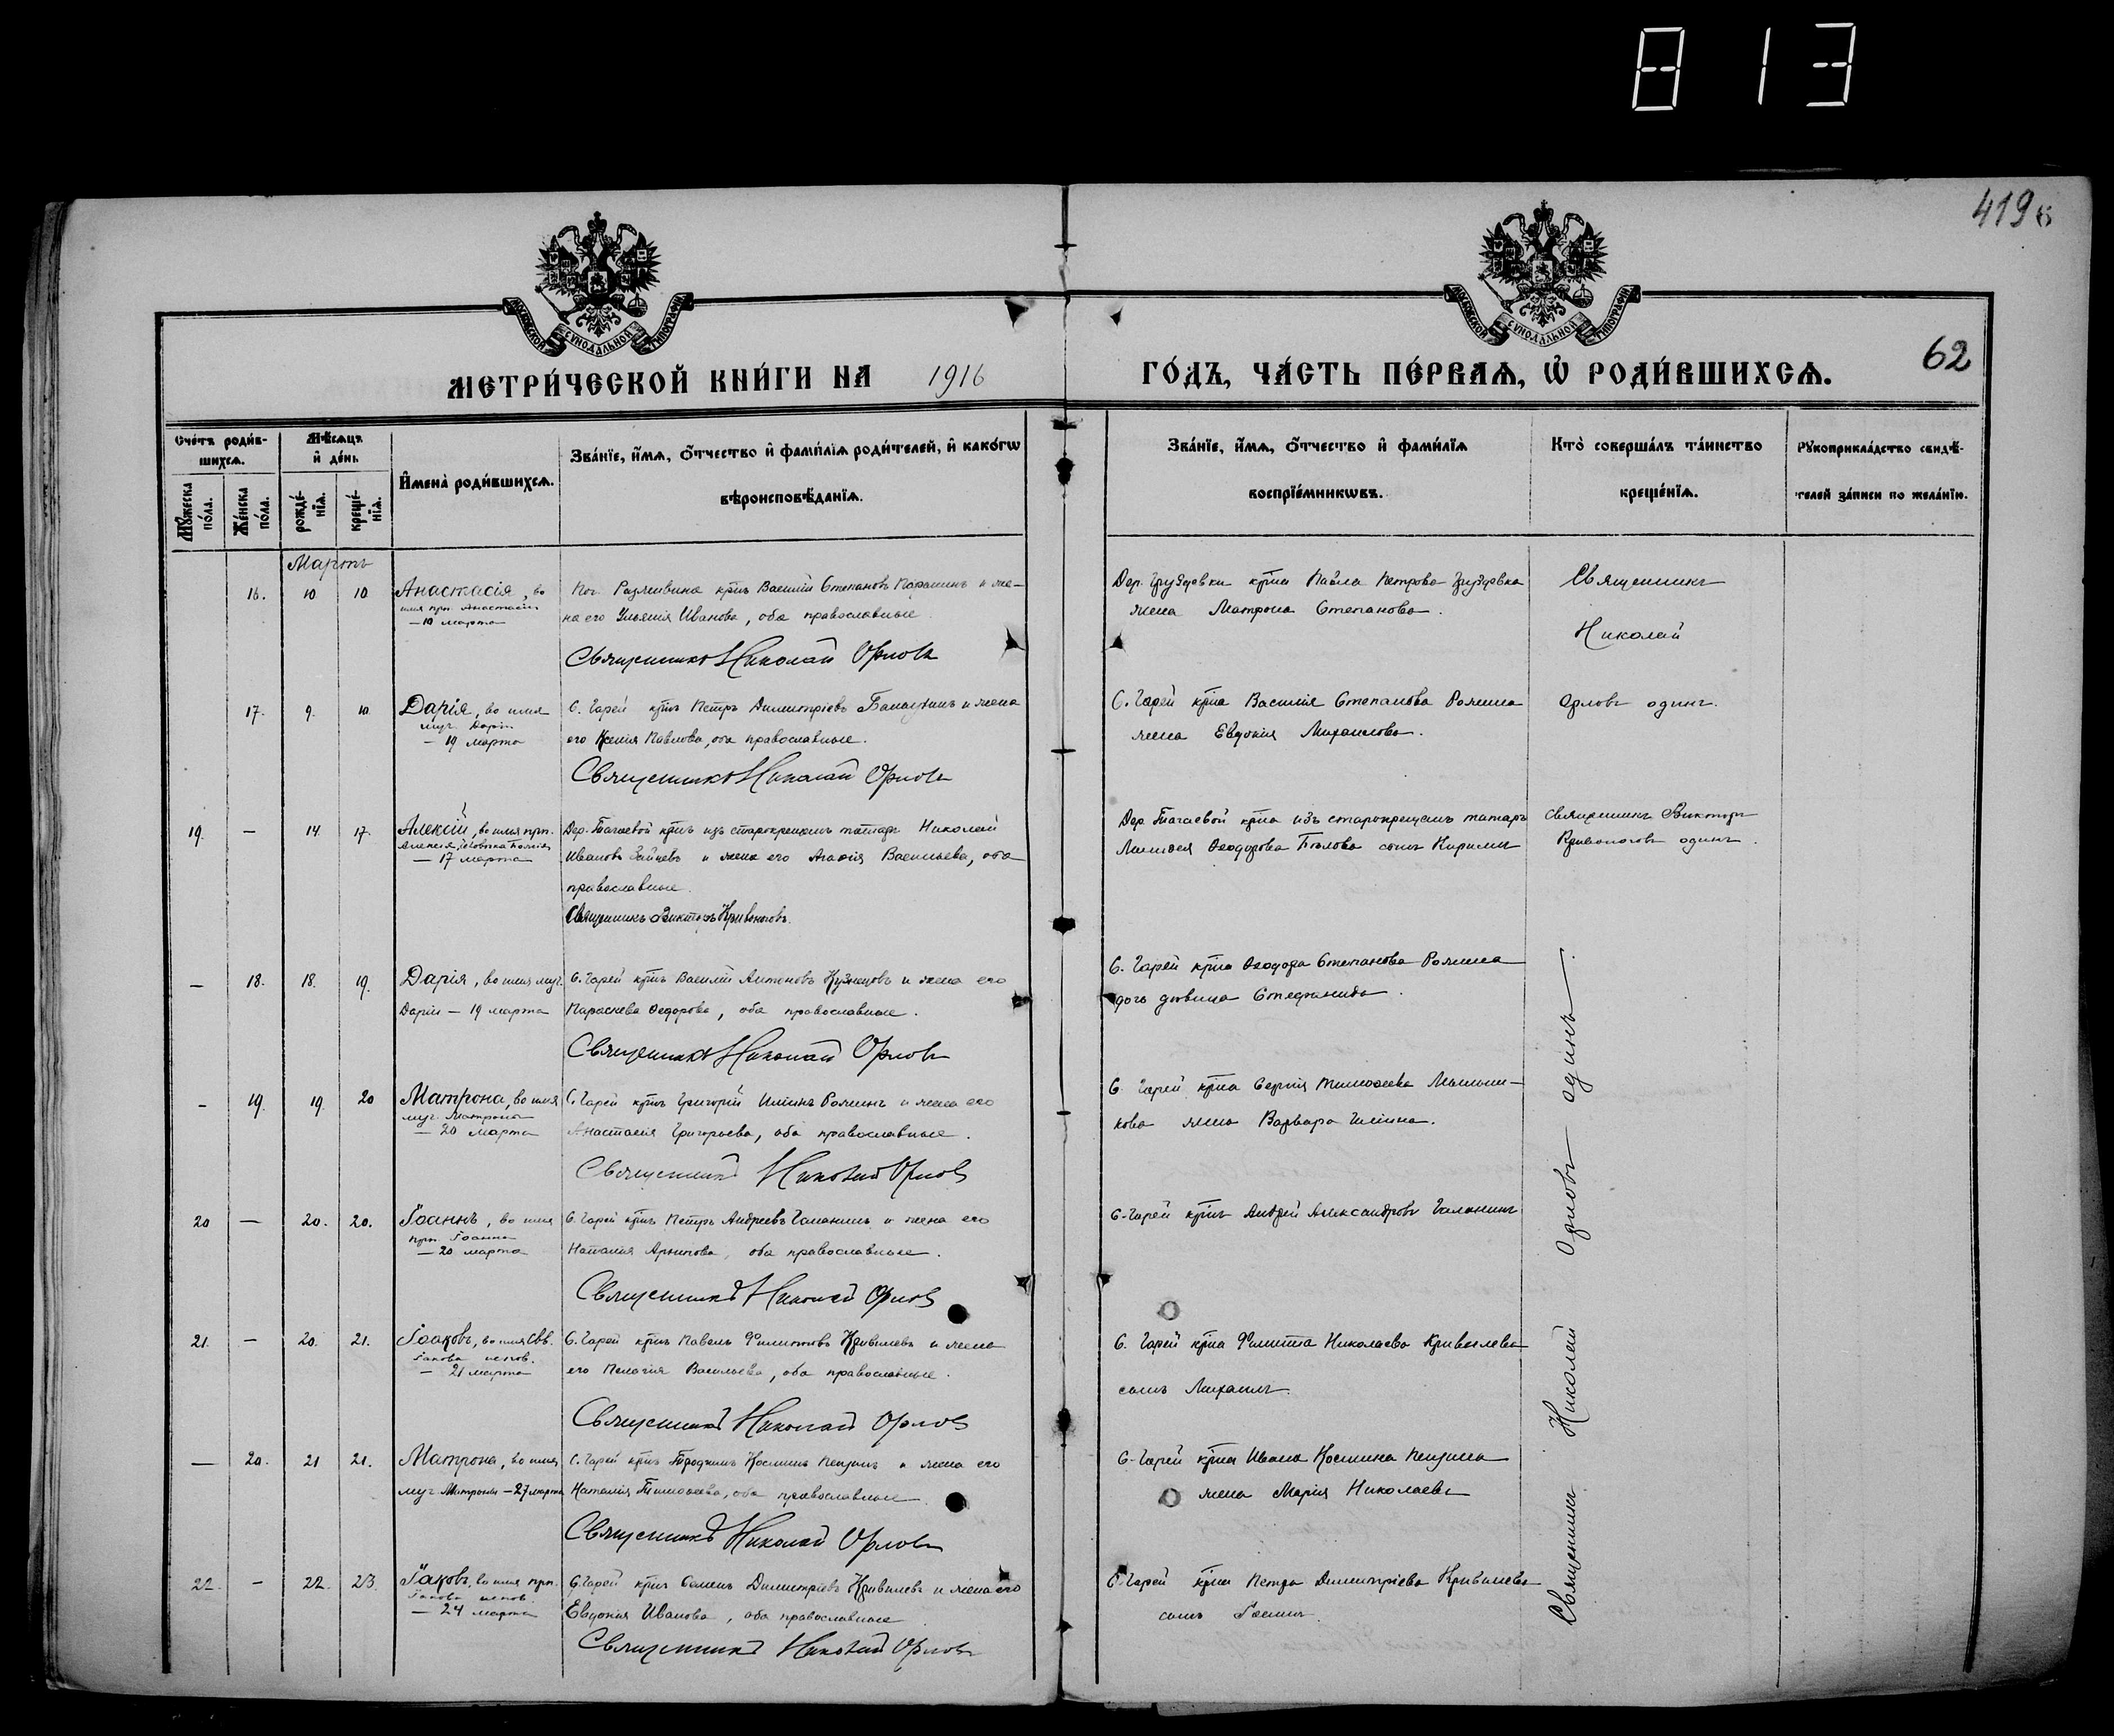 813
419 б
62
МОСКОВСКОЙ СѴНОДАЛЬНОЙ ТИПОГРАФІИ
МОСКОВСКОЙ СѴНОДАЛЬНОЙ ТИПОГРАФІИ
МЕТРИ́ЧЕСКОЙ КНИ́ГИ НА 1916 ГО́ДЪ, ЧА́СТЬ ПЕ́РВАѦ, Ѡ҆ РОДИ́ВШИХСѦ.
Сче́тъ роди́в-
шихсѧ.
Мꙋ́жеска
по́ла.
Же́нска
по́ла.
Мѣ́сѧцъ
и҆ де́нь.
рожде́-
нїѧ.
креще́-
нїѧ.
И҆мена̀ роди́вшихсѧ.
Зва́нїе, и҆́мѧ, ѻ҆́тчество и҆ фами́лїѧ роди́телей, и҆ како́гѡ
вѣроисповѣ́данїѧ.
Зва́нїе, и҆́мѧ, ѻ҆́тчество и҆ фами́лїѧ
воспрїе́мникѡвъ.
Кто̀ соверша́лъ та́инство
креще́нїѧ.
Рꙋкоприкла́дство свидѣ́-
телей за́писи по жела́нїю.
Мартъ
16. 10 10 Анастасія, во
имя прп. Анастасіи
— 10 марта
крнъ Василій Степановъ и же-
на его Иванова, оба православные
Священникъ Николай Орловъ
Дер. Груздевки крна Павла Петрова Груздева
жена Матрона Степанова.
Священникъ
Николай
Орловъ одинъ.
17. 9. 10 Дарія, во имя
муч. Даріи
— 19 марта
С. Чарей крнъ Петръ Димитріевъ и жена
его Ксенія Павлова, оба православные.
Священникъ Николай Орловъ
С. Чарей крна Василія Степанова Ромина
жена Евдокія Михаилова.
19. — 14 17. Алексій, во имя прп.
Алексія, человѣка Божія
— 17 марта
Дер. крнъ изъ старокрещенъ татаръ Николай
Ивановъ Зайцевъ и жена его Агафія Васильева, оба
православные.
Священникъ Викторъ Кривоноговъ.
Дер. крна изъ старокрещенъ татаръ
Ѳеодорова Бѣлова сынъ Кириллъ
Священникъ Викторъ
Кривоноговъ одинъ.
— 18. 18. 19. Дарія, во имя муч.
Даріи — 19 марта
С. Чарей крнъ Василій Антоновъ Кузнецовъ и жена его
Параскева Ѳедорова, оба православные.
Священникъ Николай Орловъ
С. Чарей крна Ѳеодора Степанова Ромина
дочь дѣвица Стефанида.
— 19. 19. 20 Матрона, во имя
муч. Матроны
— 20 марта
С. Чарей крнъ Григорій Ильинъ Роминъ и жена его
Анастасія Григорьева, оба православные.
Священникъ Николай Орловъ
С. Чарей крна Сергія Тимоѳеева Мыльни-
кова жена Варвара Ильина.
20 — 20. 20. Іоаннъ, во имя
прп. Іоанна
— 20 марта
С. Чарей крнъ Петръ Андреевъ Галанинъ и жена его
Наталія Архипова, оба православные.
Священникъ Николай Орловъ
С. Чарей крнъ Андрей Александровъ Галанинъ
21. — 20. 21. Іаковъ, во имя свв.
Іакова испов.
— 21 марта
С. Чарей крнъ Павелъ Филипповъ Кривилевъ и жена
его Пелагія Васильева, оба православные.
Священникъ Николай Орловъ
С. Чарей крна Филиппа Николаева Кривилева
сынъ Михаилъ.
— 20. 21 21. Матрона, во имя
муч. Матроны — 27 марта
С. Чарей крнъ Косминъ и жена его
Наталія Тимоѳеева, оба православные.
Священникъ Николай Орловъ
С. Чарей крна Ивана Космина
жена Марія Николаева
22. — 22. 23. Іаковъ, во имя прп.
Іакова испов.
— 24 марта
С. Чарей крнъ Семенъ Димитріевъ Кривилевъ и жена его
Евдокія Иванова, оба православные
Священникъ Николай Орловъ
С. Чарей крна Петра Димитріева Кривилева
сынъ
Священникъ Николай Орловъ одинъ.